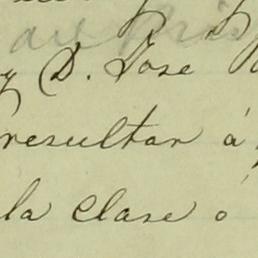 y D. Jose
resultar á
la clase ó